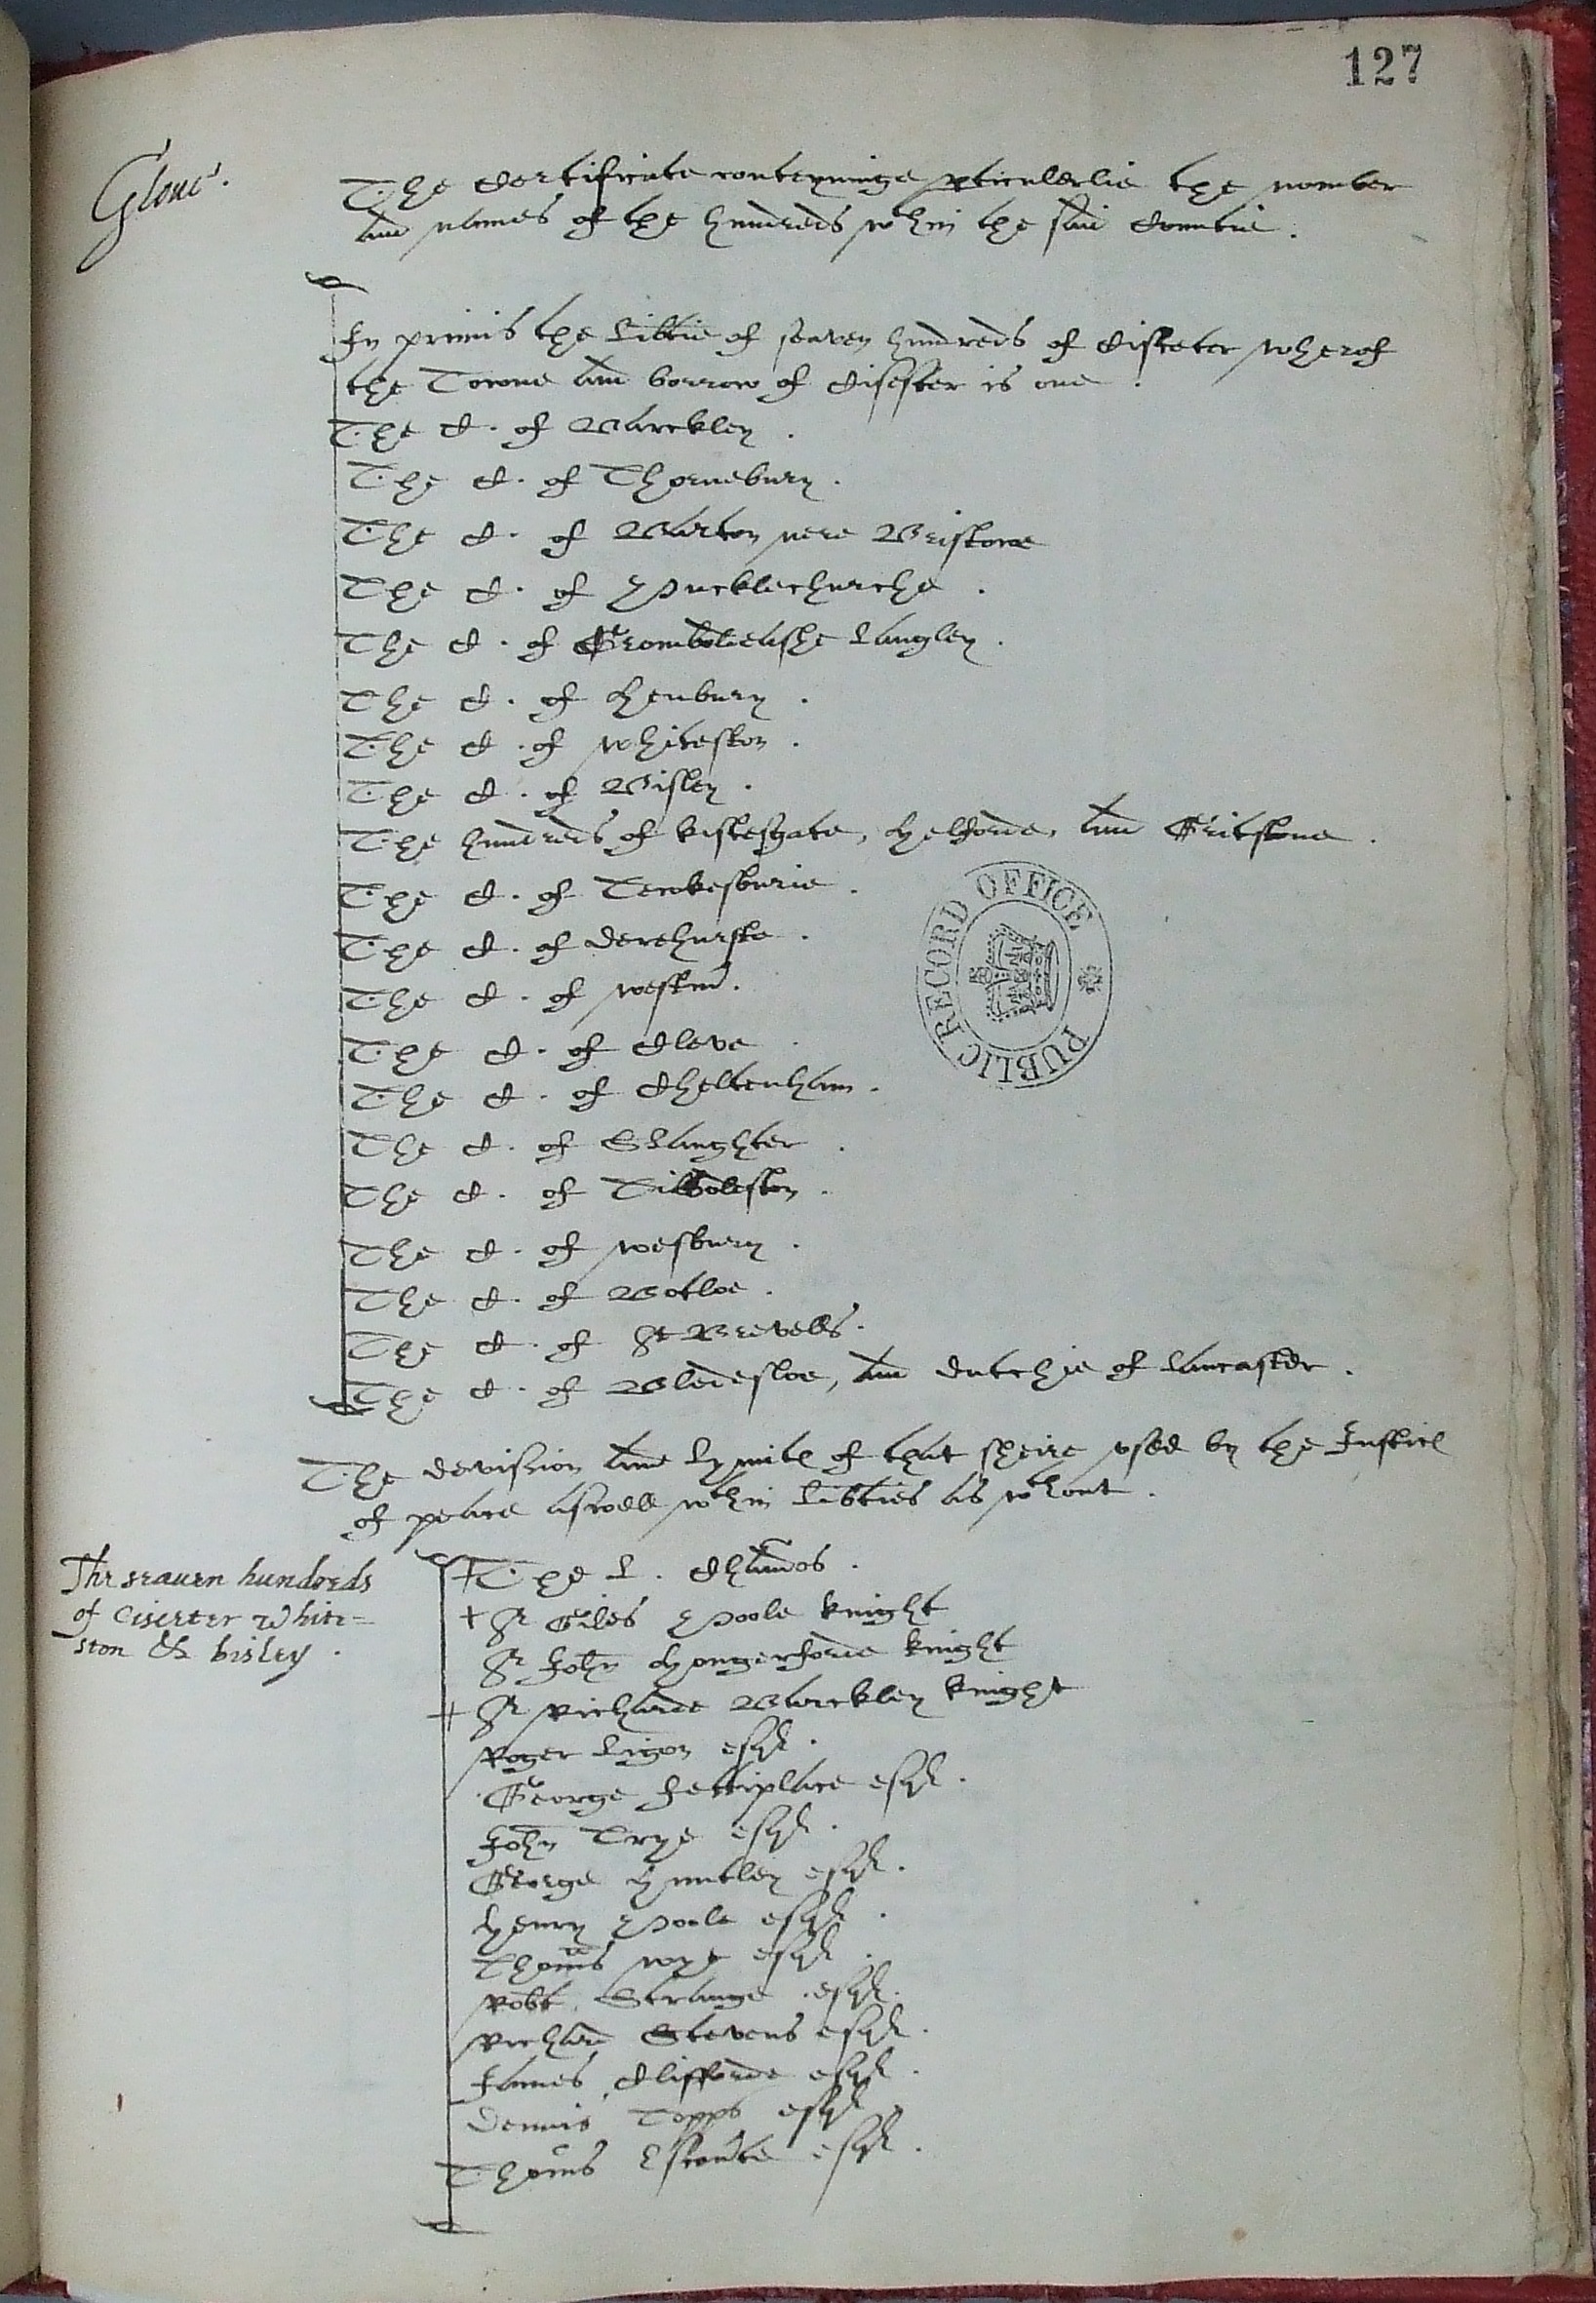 127
Glouc'.
The Certificate conteyninge pticulerlie the nomber
and names of the hundreds wthin the said Countie.
In primis the libtie of seaven hundreds of Cisseter wherof
the Towne and borrow of Cisester is one.
The C. of Barckley.
The C. of Thornebury.
The C. of Barton nere Bristowe
The C. of Pucklechurche.
The C. of Grombaldeashe Langley.
The C. of Henbury.
The C. of Whiteston.
The C. of Bisley.
The hundreds of kiftesgate, Helforde, and Gritstone.
The C. of Tewkesburie.
The C. of Derehurste.
The C. of Westm'.
The C. of Cleve
The C. of Cheltenham.
The C. of Slaughter.
The C. of Tibboleston.
The C. of Wesbury.
The C. of Botloe.
The C. of St Brevells.
The C. of Bledesloe, and Dutchie of lancaster.
PUBLIC RECORD OFFICE
The devision and lymitℓ of that sheire used by the Justicℓ
of peace aswell wthin libties as wthout.
The seauen hundreds
of Ciserter White=
ston & bisley.
+ The L. Chandos.
+ Sr Giles Poole knight
Sr John Hongerforde knight
+ Sr Richarde Barckley knight
Roger Ligon esqr.
George Fettiplace esqr.
John Trye esqr.
George Huntley esqr.
Henry Poole esqr.
Thoms Wye esqr.
Robt. Strange esqr.
Richard Stevens esqr.
James Clifforde esqr.
Dennis Topps esqr.
Thoms Estcourte esqr.